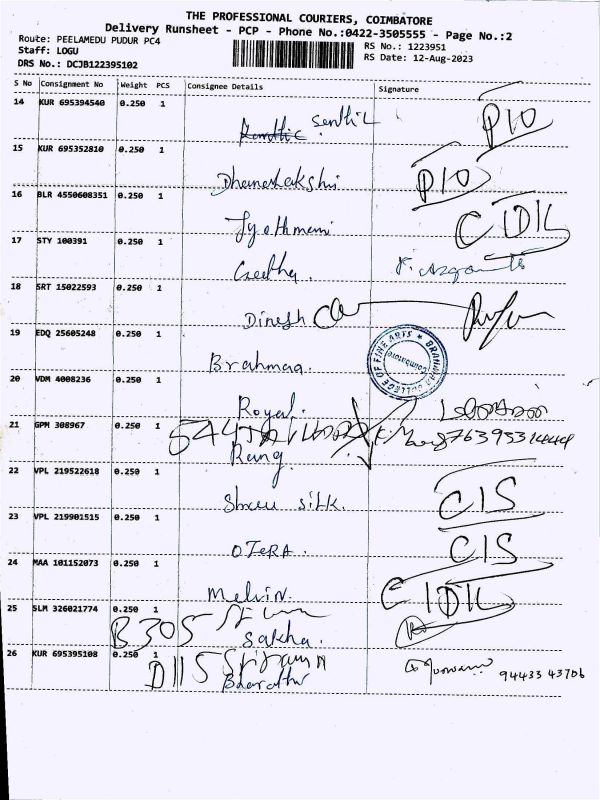 THE PROFESSIONAL COURIERS, COIMBATORE
Delivery Runsheet - PCP - Phone No.:0422-3505555 - Page No.:2
Route: PEELAMEDU PUDUR PC4
Staff: LOGU
DRS No.: DCJB122395102
RS No.: 1223951
RS Date: 12-Aug-2023
S No Consignment No Weight PCS Consignee Details Signature
14 KUR 695394540 0.250 1
Senthil
P10
15 KUR 695352810 0.250 1
Dhanalakshmi P10
16 BLR 4550608351 0.250 1
Jyothmani CIDIL
17 STY 100391 0.250 1
Geetha.
18 SRT 15022593 0.250 1
Dinesh
19 EDQ 25605248 0.250 1
Brahmaa.
COLLEGE OF FINE ARTS
Coimbatore
20 VDM 4008236 0.250 1
Royal.
21 GPM 308967 0.250 1
Rang
22 VPL 219522618 0.250 1
Shree silk. CIS
23 VPL 219901515 0.250 1
OTERA. CIS
24 MAA 101152073 0.250 1
Melvin. CIDIL
25 SLM 326021774 0.250 1
B305
Sakha.
26 KUR 695395108 0.250 1
D115 Sriram
Bharathi
94433 43706